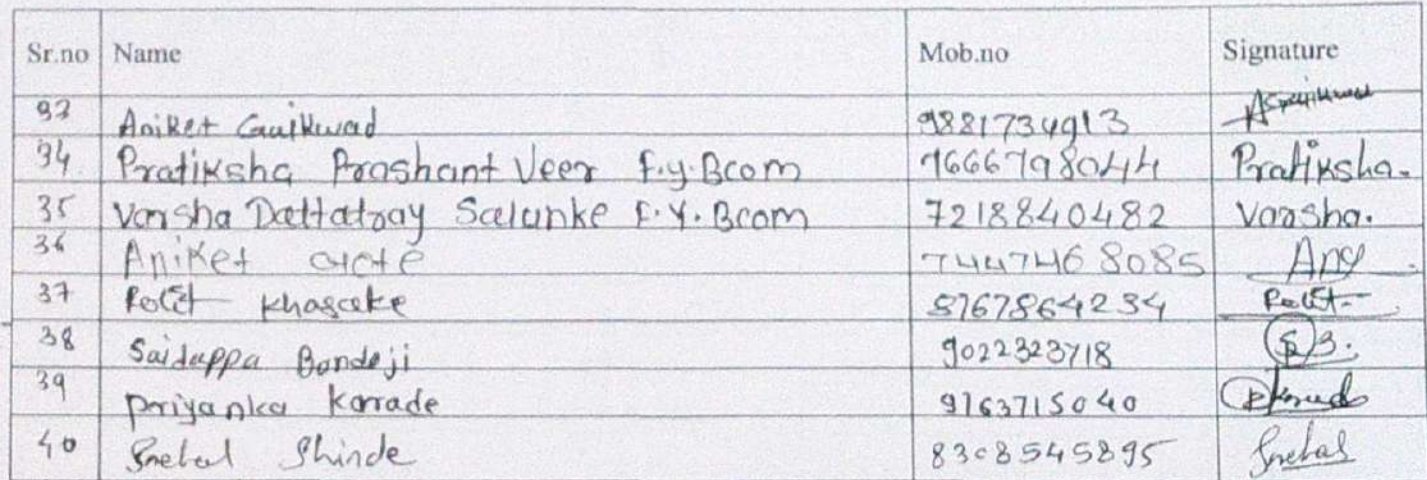 Sr.no Name Mob.no Signature
33 Aniket Gaikwad 9881734913
34 Pratiksha Prashant Veer F.y.Bcom 7666798044 Pratiksha.
35 Varsha Dattatray Salunke F.Y.Bcom 7218840482 Varsha.
36 Aniket 7447468085
37 8767864234
38 Saiduppa Bandeji 9022323718 SB.
39 Priyanka Karade 9763715040
40 Snehal Shinde 8308545895 Snehal